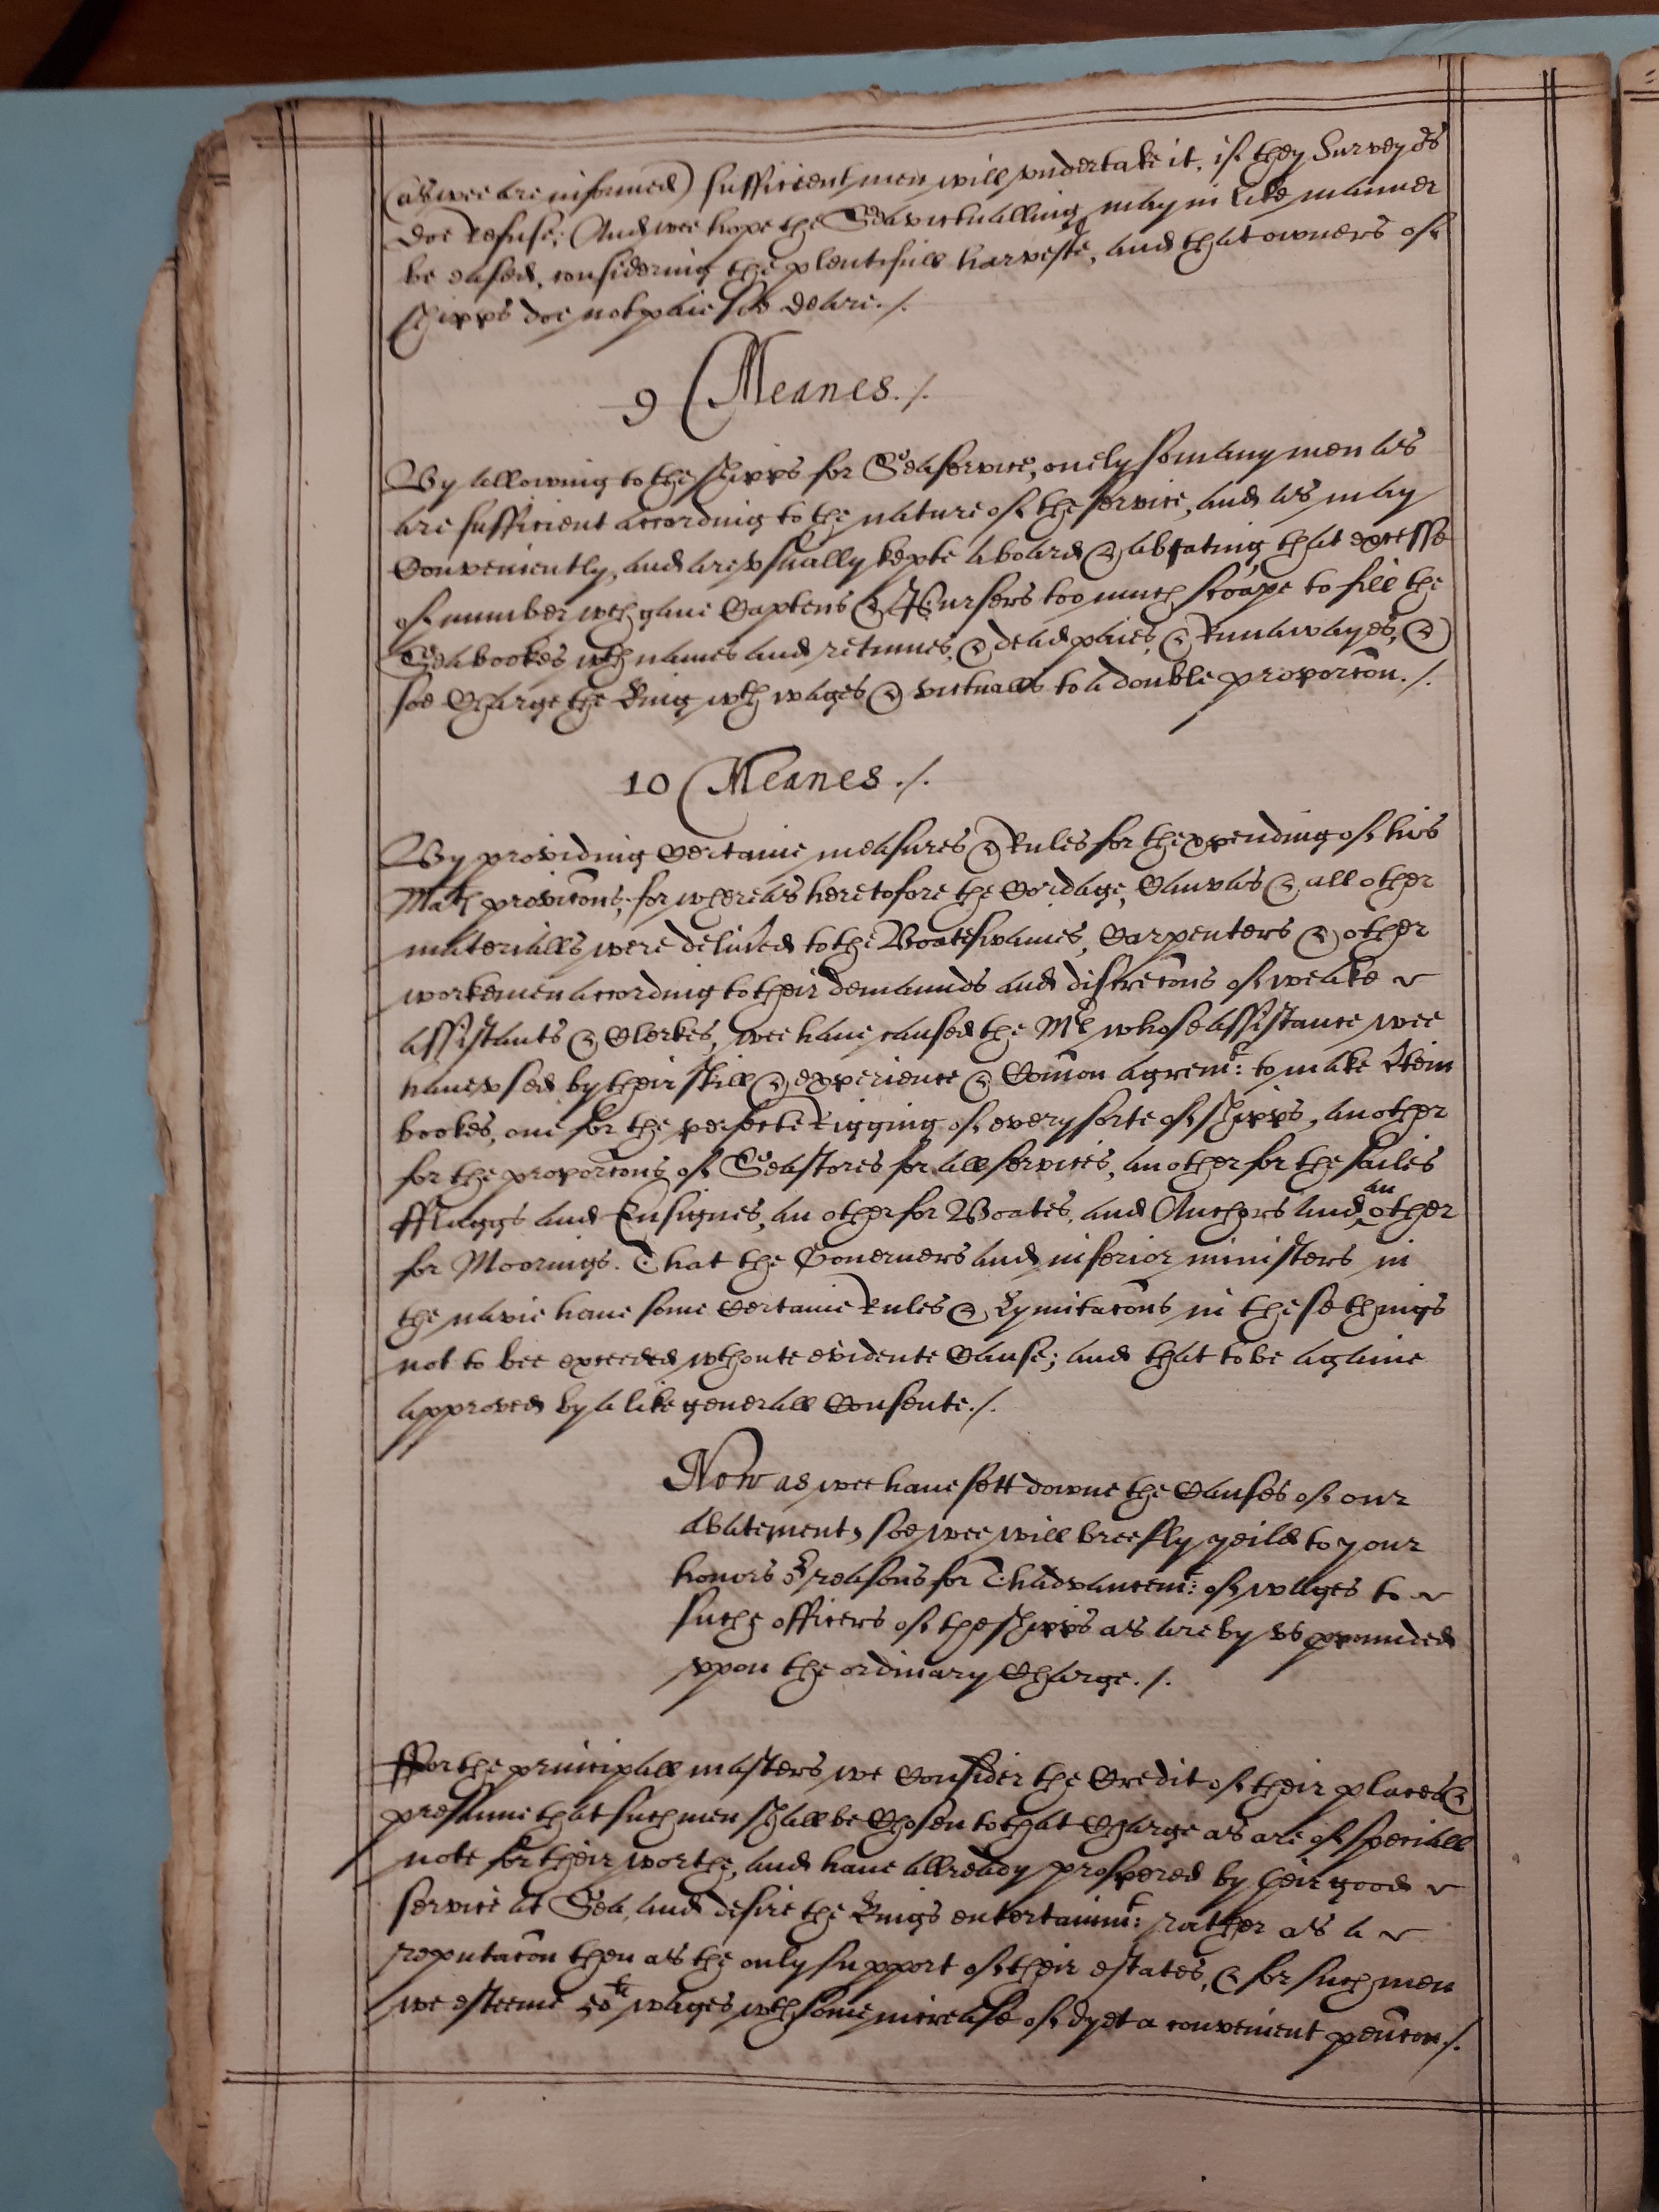 (as wee are informed) sufficient men will vndertake it, if they Surveyors
doe refuse; And wee hope the Seavictualling may in like manner
be eased, considering the plentifull harveste, and that owners of
shipps doe not paie soe deare ./.
9 Meanes ./.
By allowing to the shipps for Seaservice, onely so many men as
are sufficient according to the nature of the service, and as may
Conveniently, and are vsually kepte aboard & abating that excesse
of number wch gave Captens & Pursers too much scope to fill the
Seabookes wth names and retinues, & deadpaies, & Runawayes, &
soe Charge the King wth wages & victualls to a double proporcōn ./.
10 Meanes ./.
By providing Certaine measures & Rules for th expending of his
Mats provicōns; for whereas heretofore the Cordage, Canvas & all other
materialls were delived to the Boateswaines, Carpenters & other
workemen according to their demaunds and discrecōns of weake
assistants & Clerkes, wee have caused the Mrs whose assistance wee
have vsed by their skill & experience & Com̄on agremt: to make
bookes, one for the perfecte Rigging of every sorte of shipps, another
for the proporcōns of Seastores for all services, another for the sailes
fflaggs and Ensignes, an other for Boates, and Anchors and an other
for Moorings. That the Governers and inferior ministers in
the navie have some Certaine Rules & Lymitacōns in these things
not to bee exceeded wthoute evidente Cause; and that to be againe
approved by a like generall Consente ./.
Now as wee have sett downe the Causes of our
abatement, soe wee will breefly yeild to your
honors or reasons for Thadvancemt: of wages to
such officers of the shipps as are by vs propounded
vpon the ordinary Charge ./.
ffor the principall masters we Consider the Credit of their places &
presume that such men shall be Chosen to that Charge as are of speciall
note for their worthe, and have allready prospered by their good
service at Sea, and desire the Kings entertainmt: rather as a
reputacōn then as the only support of their estates, & for such men
we esteeme wages wth some increase of dyet a convenient pencōn ./.